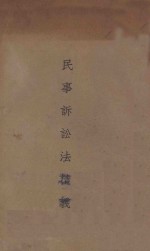 民事訴訟法精義